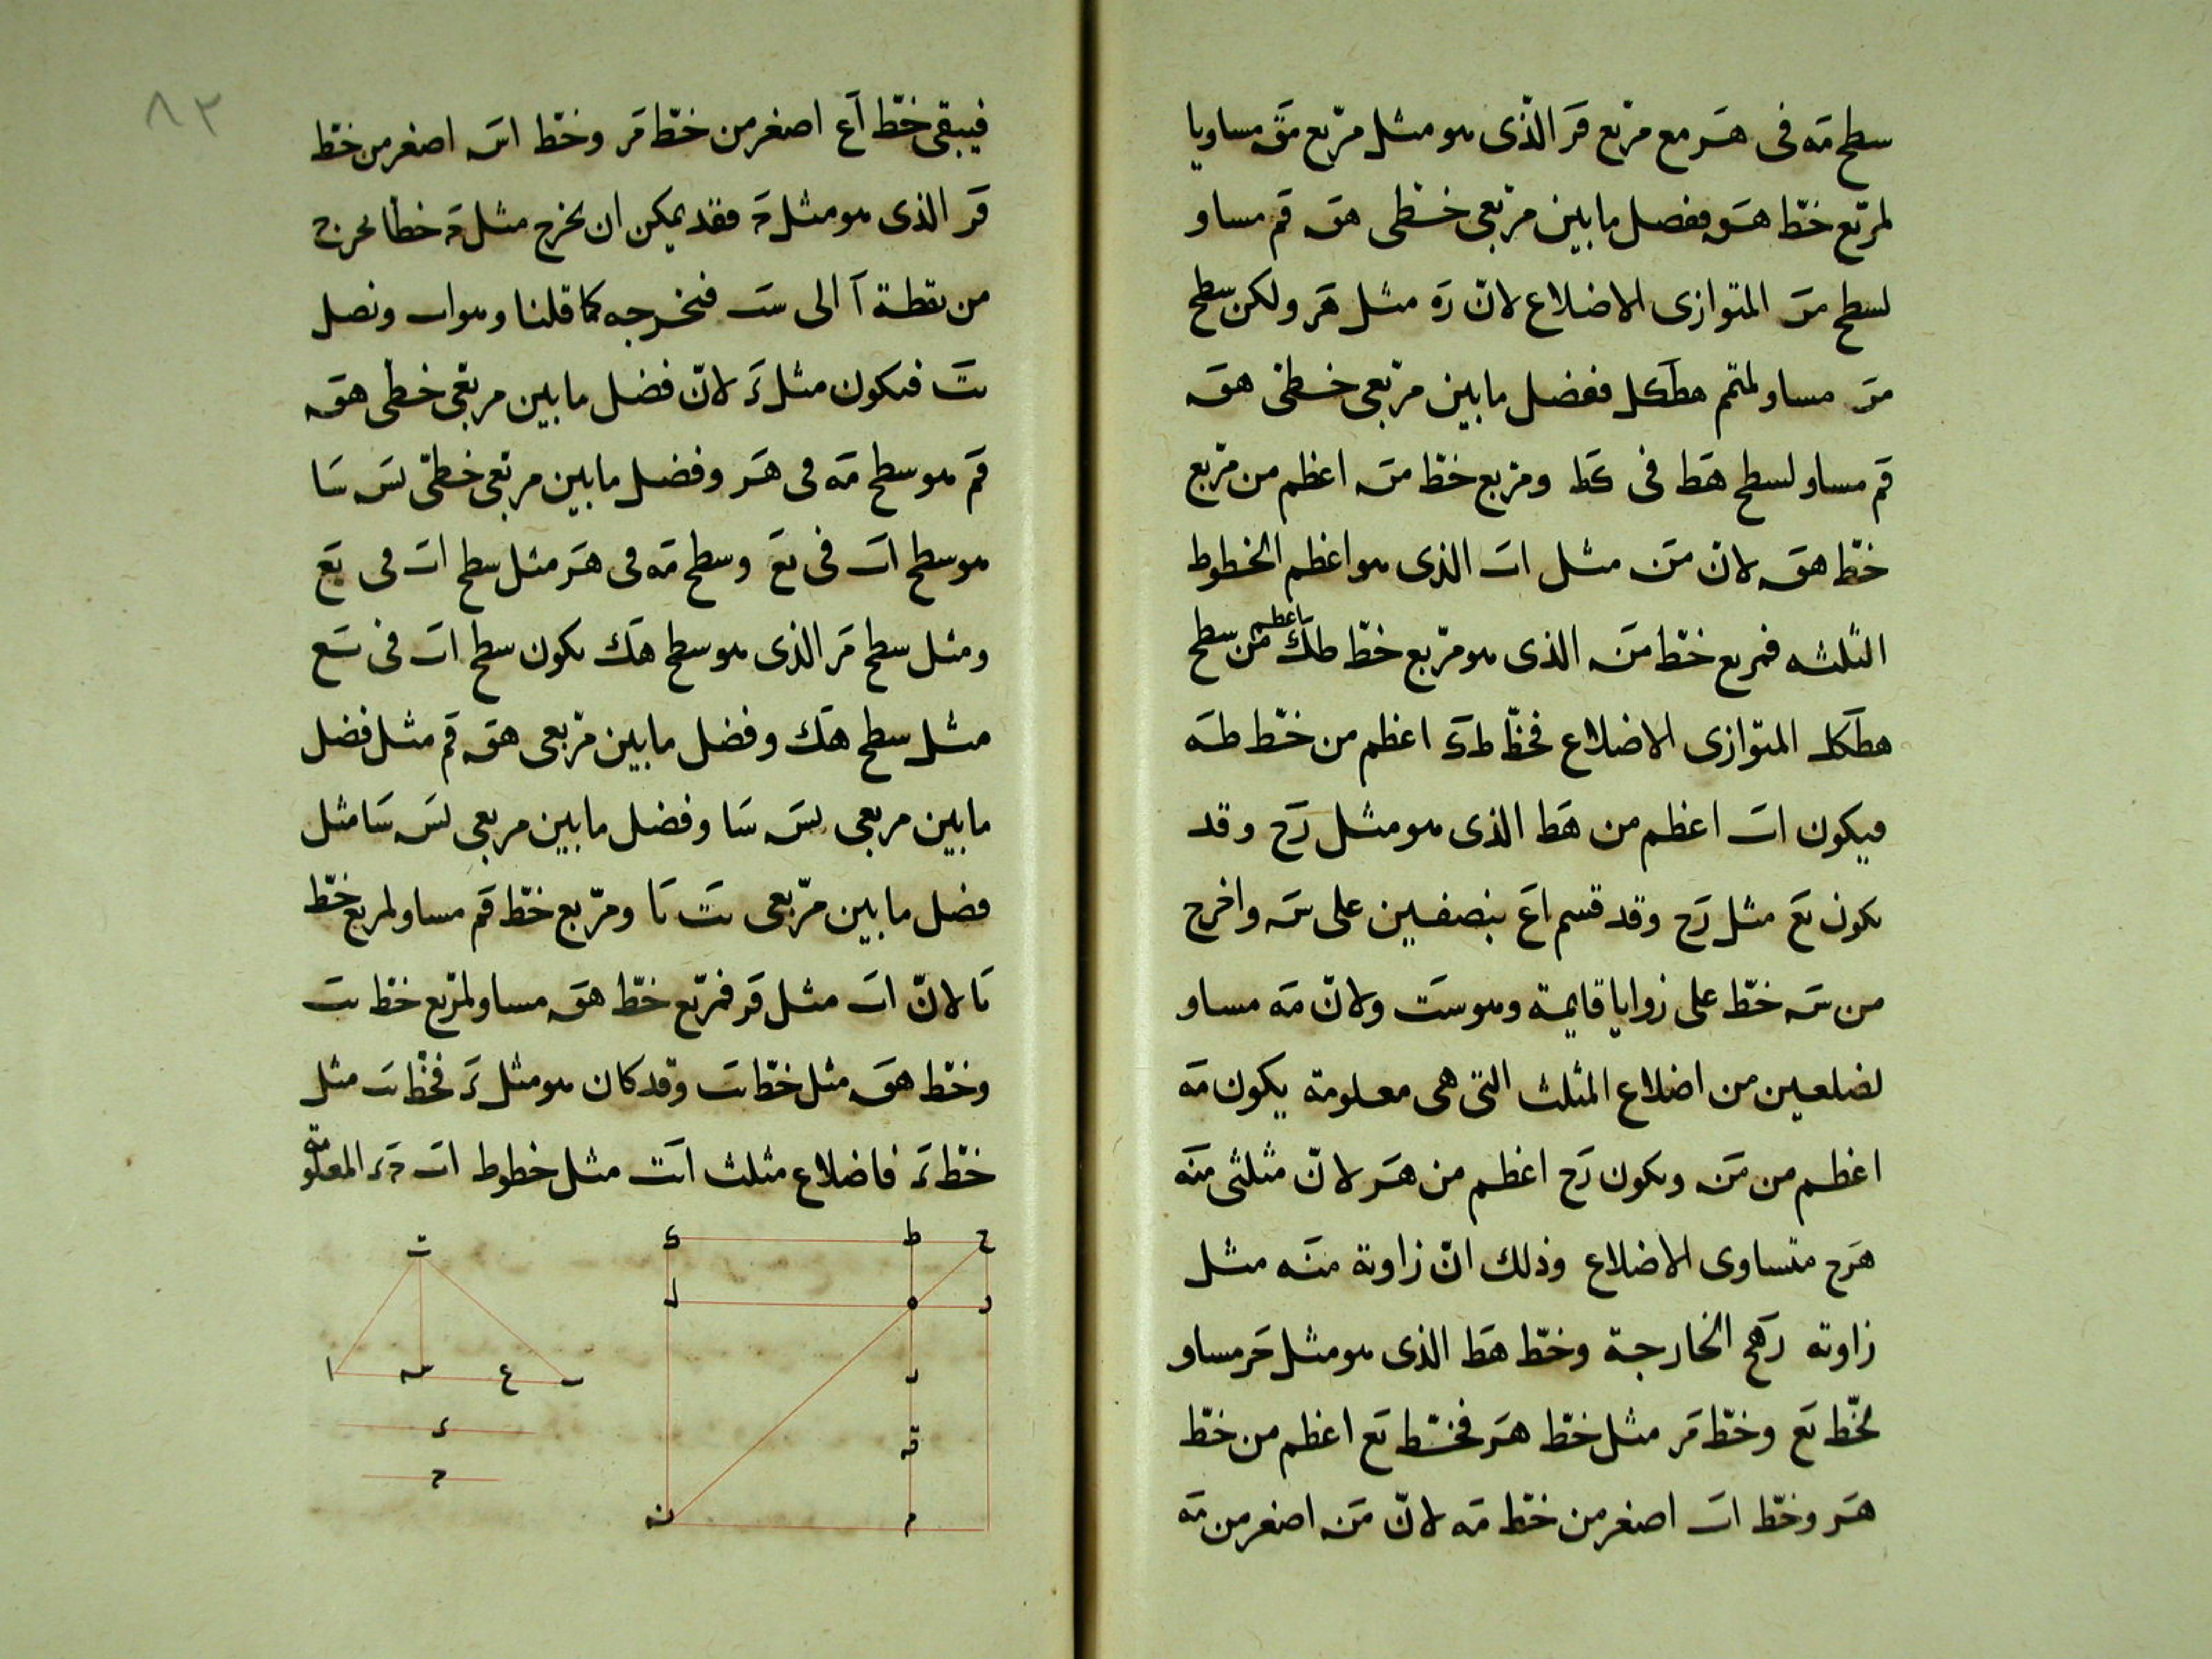 سطح مَه فى هَر مع مربّع قَر الذّى هو مثل مربّع مَق مساويا
لمربّع خطّ هَق ففضل ما بين مربّعى خطّى هَق قَم مساو
لسطح مَرَ المتوازى الاضلاع لانّ رَه مثل هَر ولكن سطح
مَرَ مساو لمتمم هطَكل ففضل ما بين مربّعى خطّى هَق
قَم مساو لسطح هَط فى كَط ومربع خطّ مَن اعظم من مربّع
خطّ هَق لانّ مَن مثل اَب الذى هو اعظم الخطوط
الثلثه فمربع خطّ مَن الذى هو مربّع خطّ طَك اعظم من سطح
هطَكل المتوازى الاضلاع فخطّ طَكَ اعظم من خطّ طَه
فيكون اَب اعظم من هَط الذى هو مثل رَح وقد
يكون بَع مثل رَح وقد قسم اَعَ بنصفين على سَ واخرج
من سَ خطّ على زوايا قايمة وهو سَت ولانّ مَه مساو
لضلعين من اضلاع المثلث التى هى معلومة يكون مَه
اعظم من مَن ويكون رَح اعظم من هَر لانّ مثلثى مَنَه
هَرح متساوى الاضلاع وذلك انّ زاوية مَنَه مثل
زاوية رَهَح الخارجة وخطّ هَط الذى هو مثل حَر مساو
لخّط بَع وخطّ مَر مثل خطّ هَر فخطّ بَع اعظم من خطّ
هَر وخطّ اَب اصغر من خطّ مَه لانّ مَن اصغر من مَه
٨٣
فيبقى خطّ آعَ اصغر من خطّ مَر وخطّ اسَ اصغر من خطّ
قَر الذى هو مثل حَ فقد يمكن ان يخرج مثل حَ خطا يخرج
من نقطة آ الى سَت فنخرجه كما قلنا وهو ات ونصل
بَت فيكون مثل ءَ لانّ فضل ما بين مربعى خطّى هَق
قَم هو سطح مَه فى هَر وفضل ما بين مربعى خطّى بَس سَا
هو سطح اَب فى بَع وسطح مَه فى هَر مثل سطح اَب فى بَع
ومثل سطح مَر الذى هو سطح هَك يكون سطح اَب فى بَع
مثل سطح هَك وفضل ما بين مربعى هَق قَم مثل فضل
ما بين مربعى بَس سَا وفضل ما بين مربعى بَس سَا مثل
فضل ما بين مربّعى بَت تَا ومربّع خطّ قَم مساو لمربع خطّ
تَا لانّ اَت مثل قَر فمربّع خطّ هَق مساو لمربّع خطّ بَت
وخطّ هَق مثل خطّ بَت وقد كان هو مثل ءَ فخطّ بَت مثل
خطّ ءَ فاضلاع مثلث اَبَت مثل خطوط اَب حَ ءَ المعلومة
ت
ا س ع ب
ء
ح
ك ط ح
ل ه ر
ر
ق
ن م